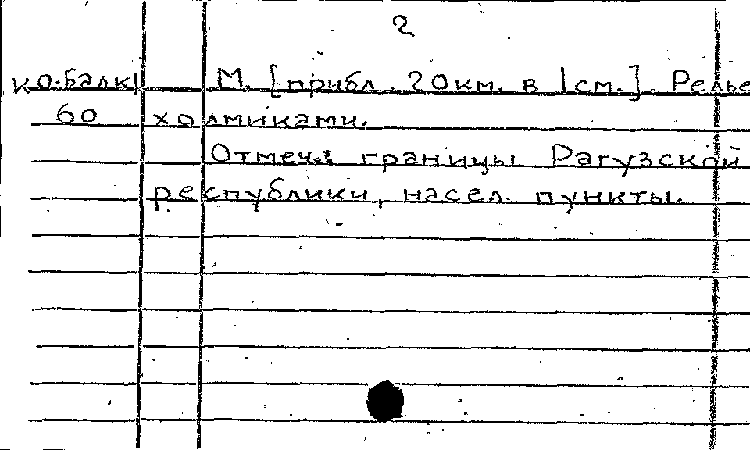 2
ко.Балк М. [прибл. 20км. в 1см.]. Релье
60 холмиками.
Отмеч. границы Рагузской
республики, насел. пункты.